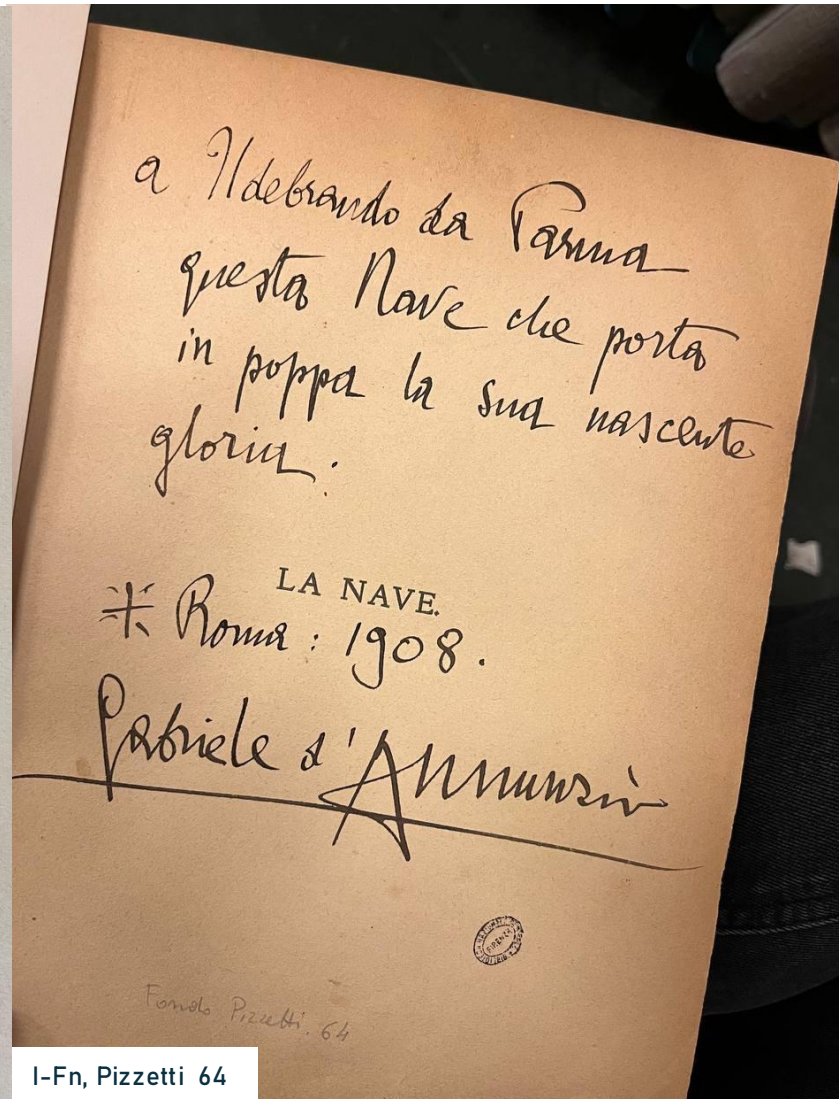 a Ildebrando da Parma
questa Nave che porta
in poppa la sua nascente
gloria.
LA NAVE.
Roma: 1908.
Gabriele d'Annunzio
FIRENZE
Fondo Pizzetti. 64
I-Fn, Pizzetti 64